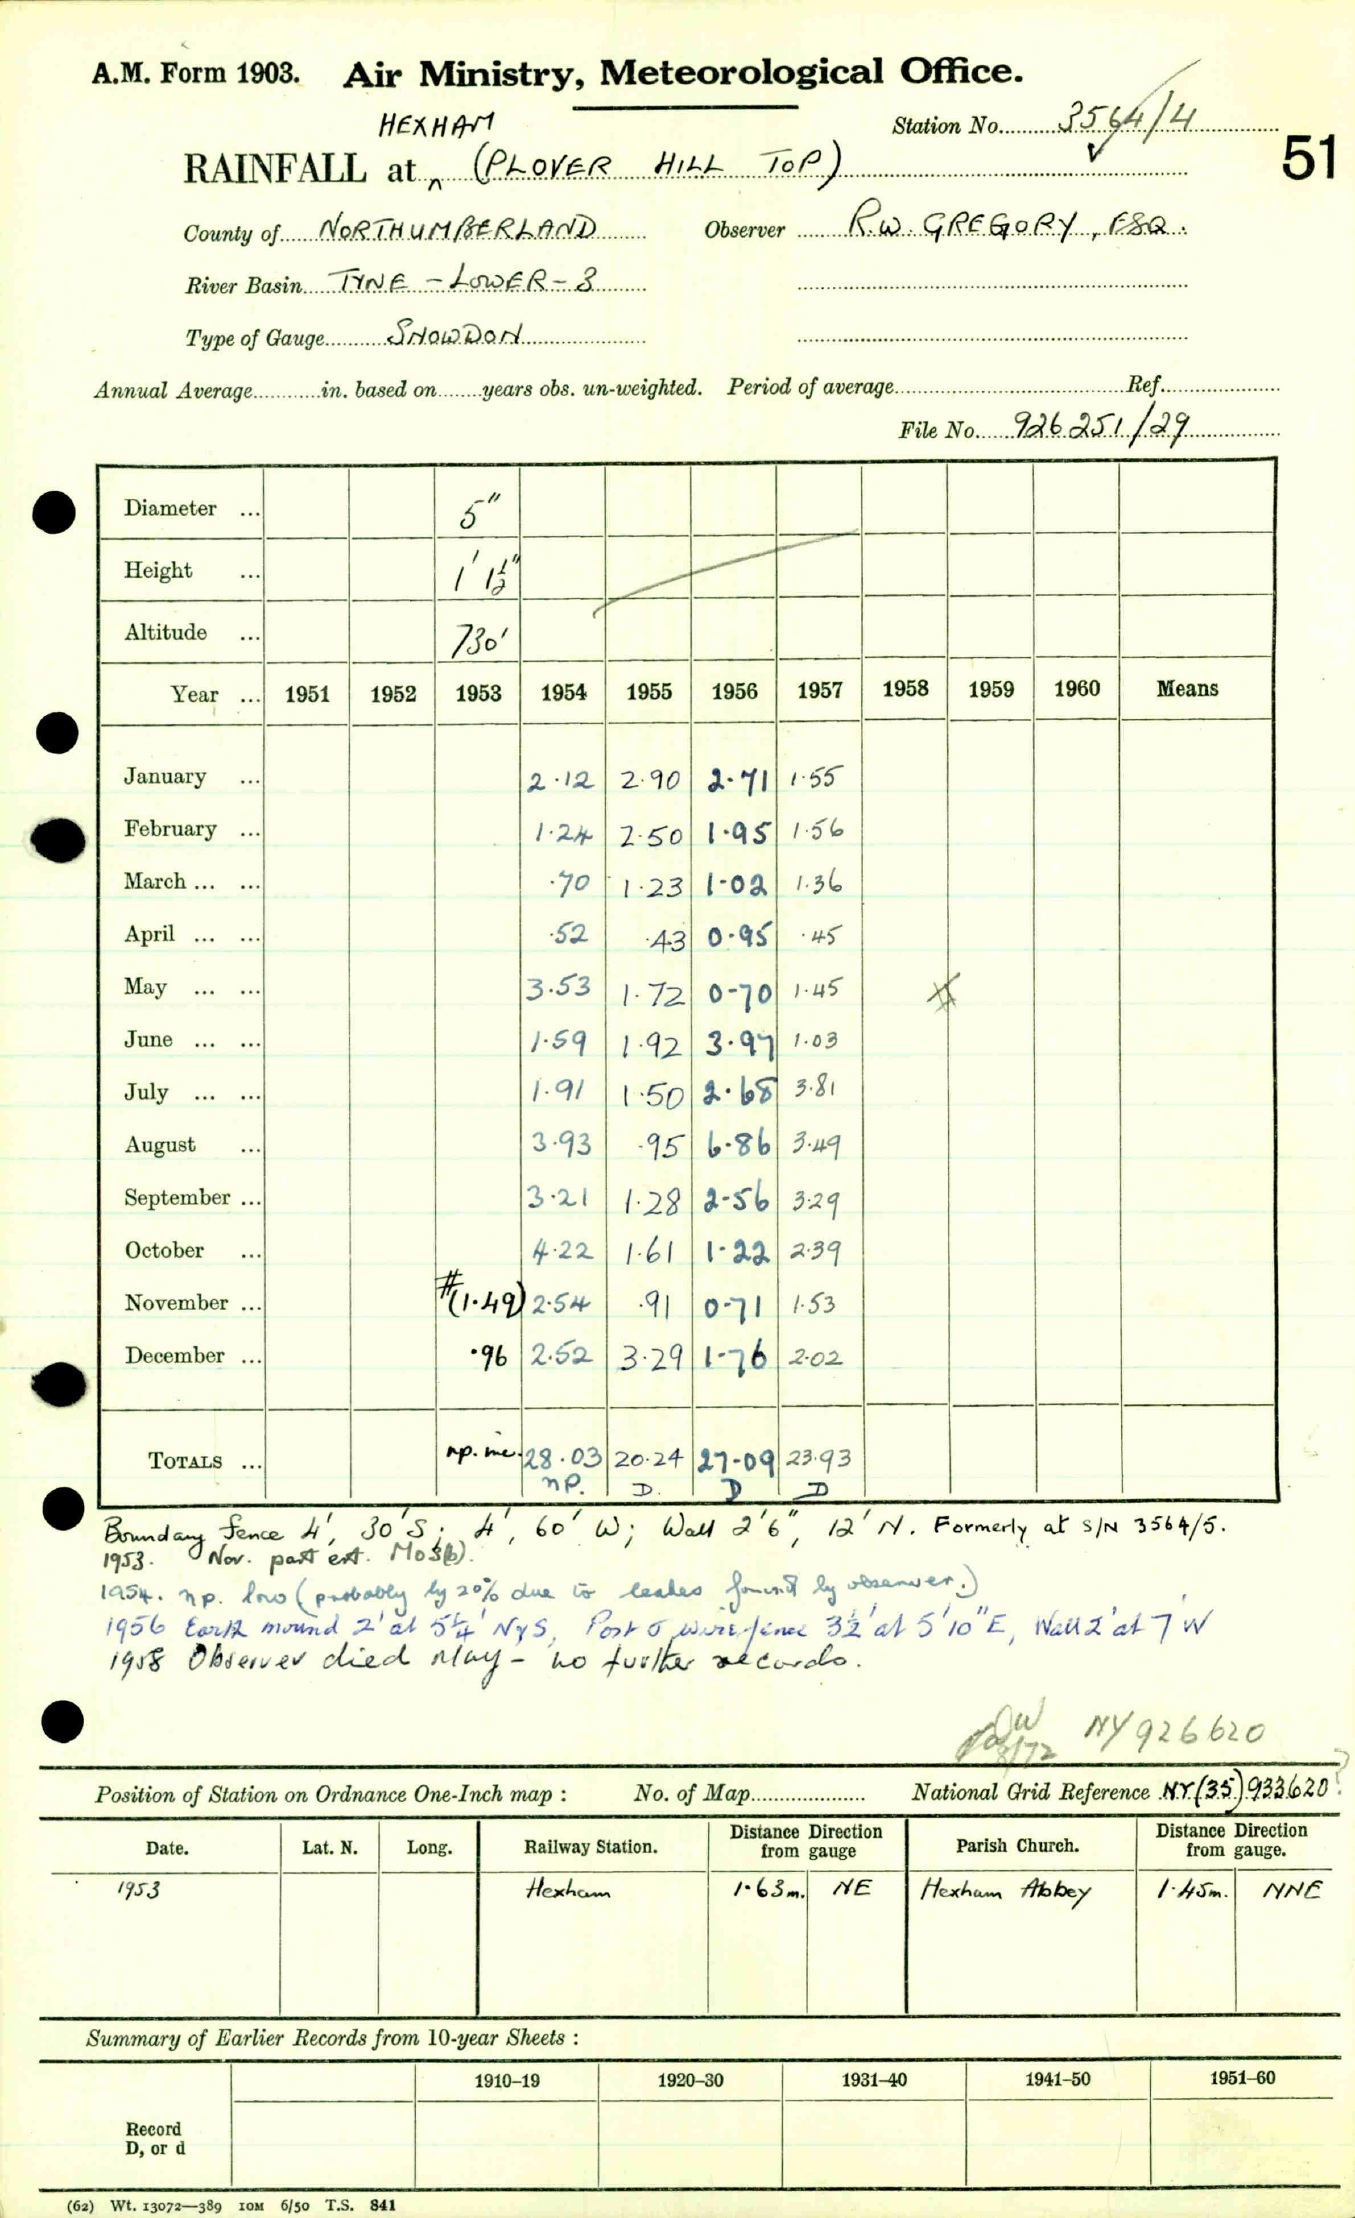 A.M. Form 1903. Air Ministry, Meteorological Office.
Station No. 3564/4
51
HEXHAM
RAINFALL at ^ (PLOVER HILL TOP)
County of NORTHUMBERLAND Observer R.W. GREGORY, ESQ.
River Basin TYNE – LOWER – 3
Type of Gauge SNOWDON
Annual Average in. based on years obs. un-weighted. Period of average Ref.
File No. 926251/29
Diameter ... 5"
Height ... 1' 1½"
Altitude ... 730'
Year ... 1951 1952 1953 1954 1955 1956 1957 1958 1959 1960 Means
January ... 2.12 2.90 2.71 1.55
February ... 1.24 2.50 1.95 1.56
March ... ... .70 1.23 1.02 1.36
April ... ... .52 .43 0.95 .45
May ... ... 3.53 1.72 0-70 1.45
June ... ... 1.59 1.92 3.97 1.03
July ... ... 1.91 1.50 2.68 3.81
August ... 3.93 .95 6.86 3.49
September ... 3.21 1.28 2-56 3.29
October ... 4.22 1.61 1.22 2.39
November ... #(1.49) 2.54 .91 0-71 1.53
December ... .96 2.52 3.29 1-76 2.02
TOTALS ... np. inc. 28.03 20.24 27-09 23.93
np. D. D D
Boundary fence 4', 30' S; 4', 60' W; Wall 2'6", 12' N. Formerly at S/N 3564/5.
1953. Nov. part est. MO3(b).
1954. np. low (probably by 20% due to leakes found by observer.)
1956 Earth mound 2' at 5¼' N&S, Post & wire fence 3½' at 5'10" E, Wall 2' at 7' W
1958 Observer died May – no further records.
8/72 NY 926620
Position of Station on Ordnance One-Inch map : No. of Map National Grid Reference NY(35)933620?
Date. Lat. N. Long. Railway Station. Distance from Direction gauge Parish Church. Distance from Direction gauge.
1953 Hexham 1.63m. NE Hexham Abbey 1.45m. NNE
Summary of Earlier Records from 10-year Sheets :
1910–19 1920–30 1931–40 1941–50 1951–60
Record
D, or d
(62) Wt. 13072—389 10M 6/50 T.S. 841